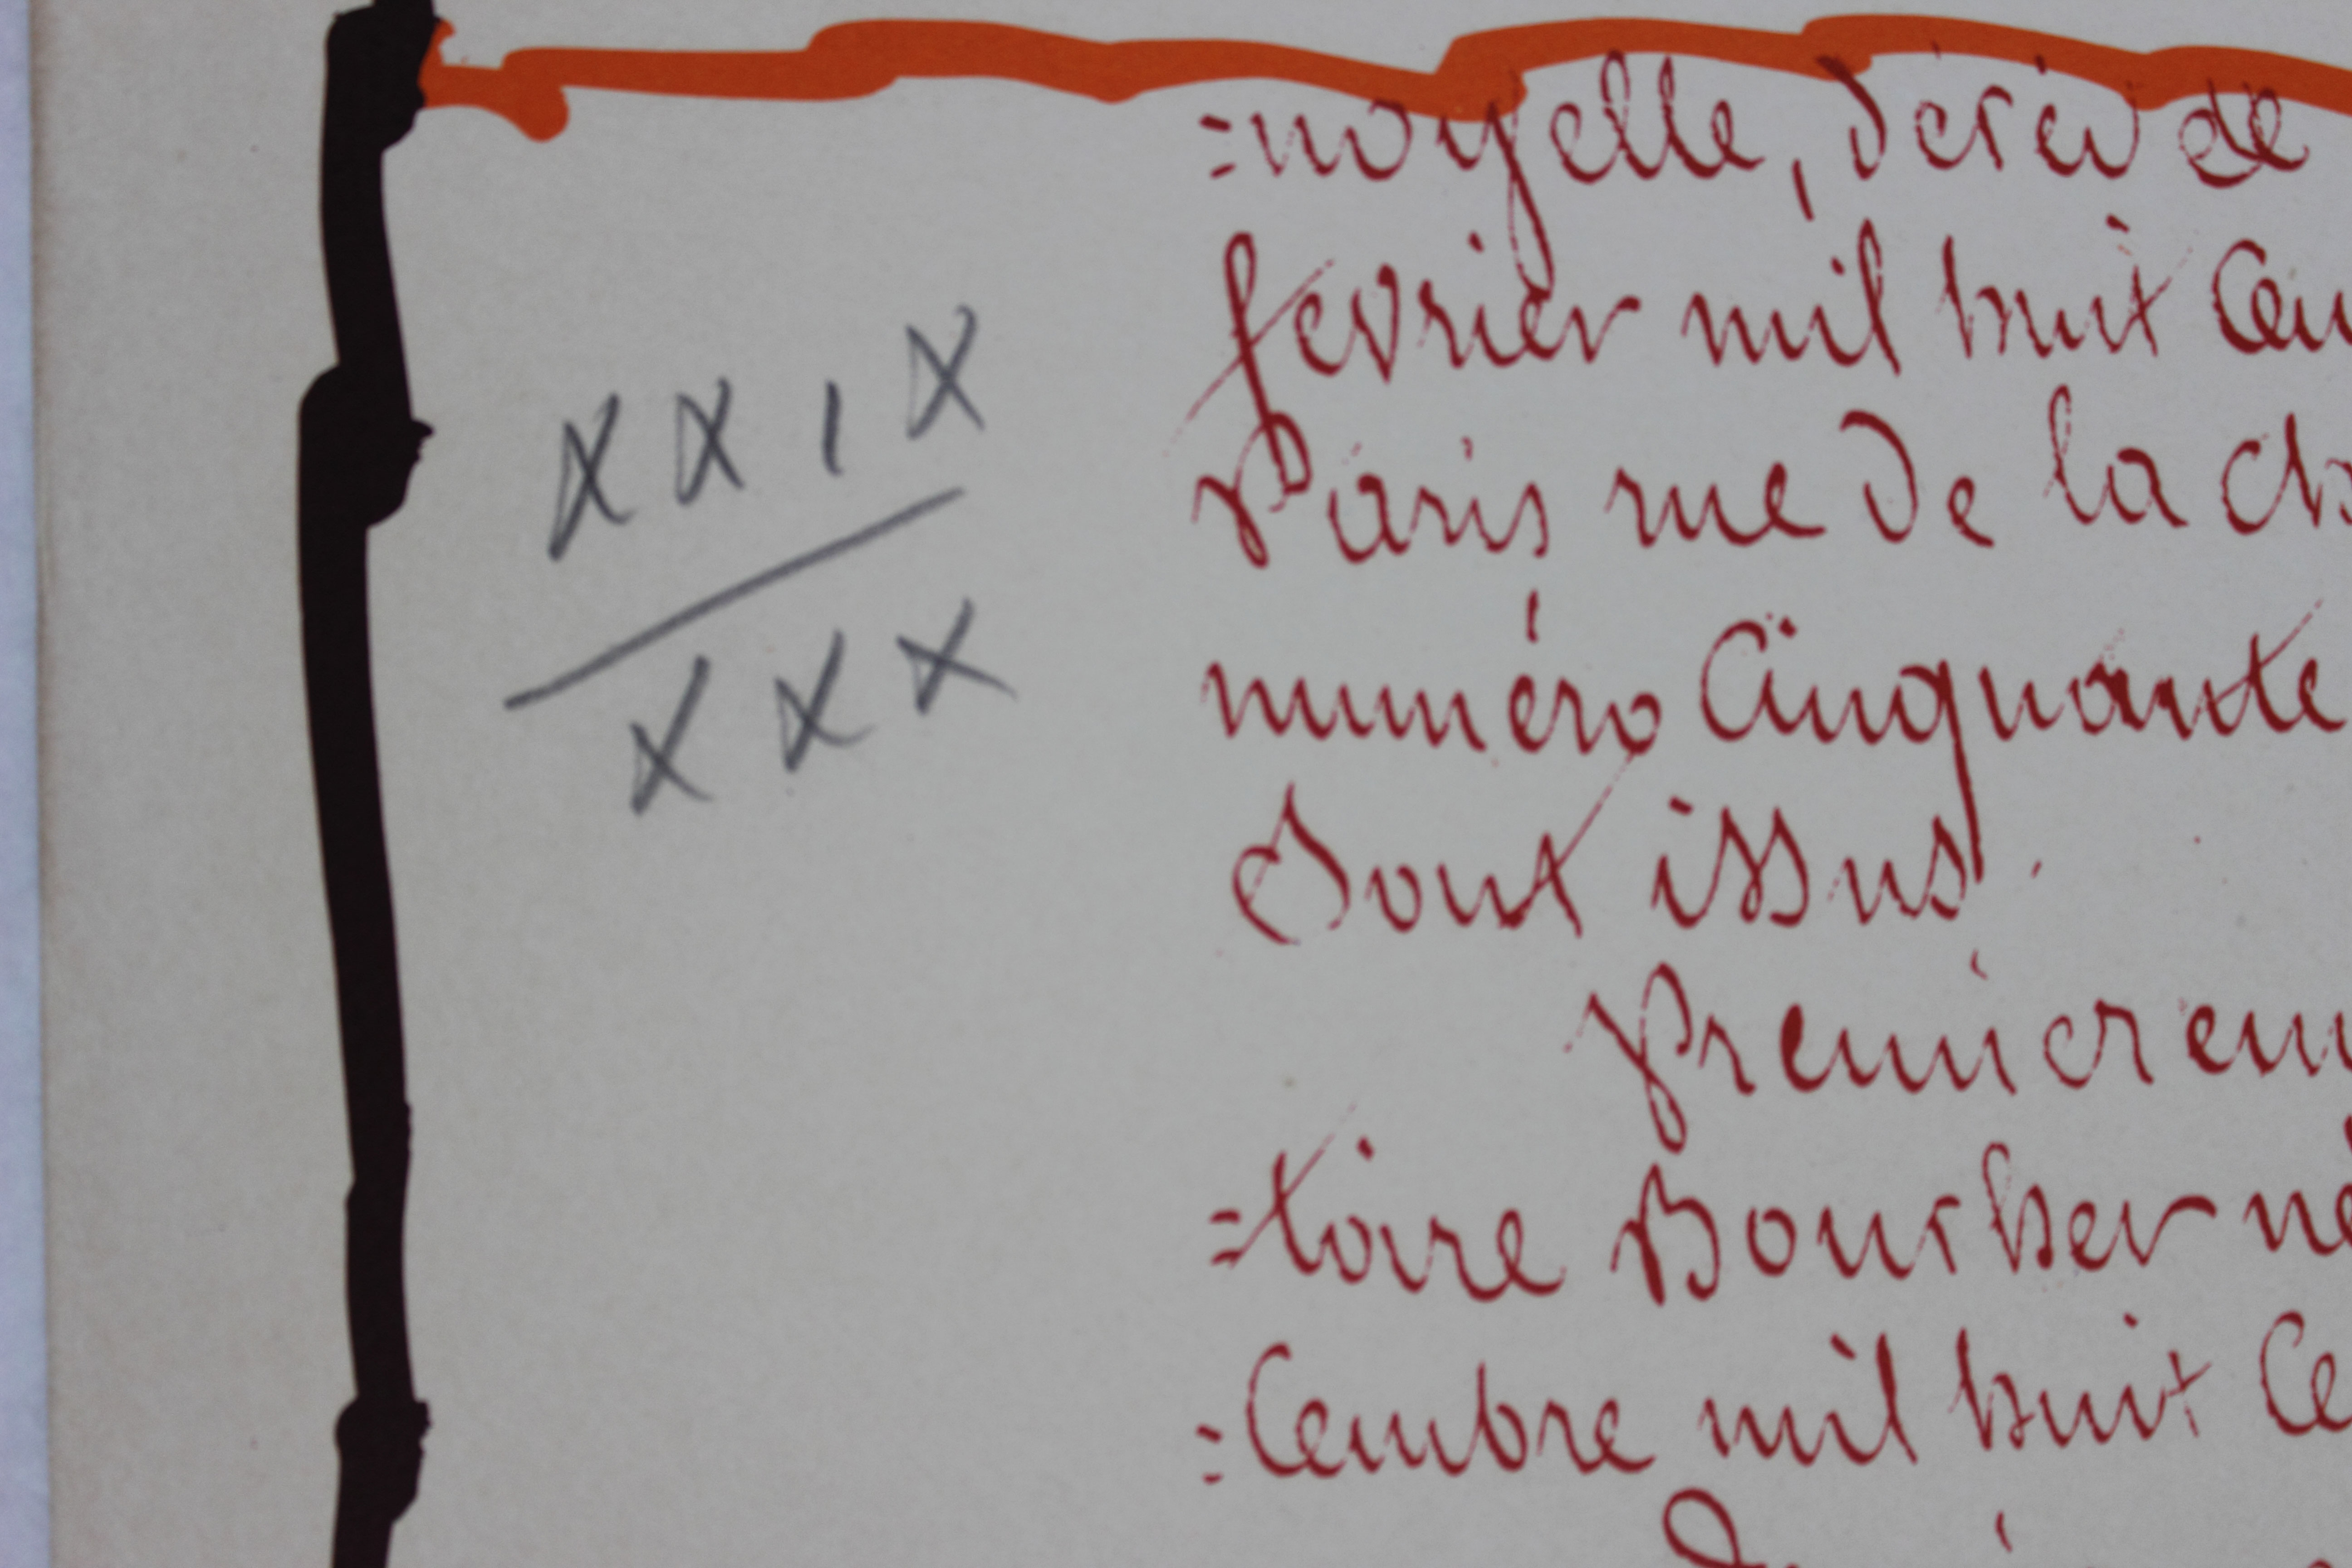 =noyelle, décéd de
XXIX
XXX
février mil huit Cen
Paris rue de la ch
numéro Cinquante
Sont issus.
premièrem
=toire Bourber né
=Cembre mil huit Ce